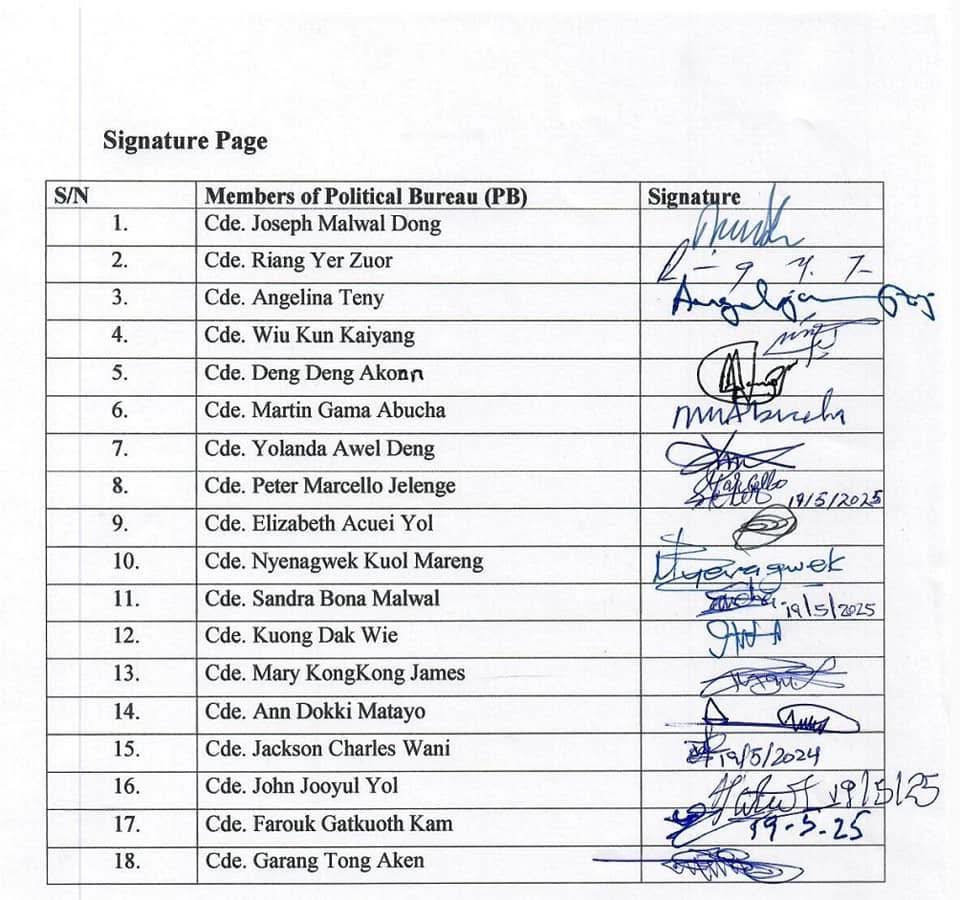 Signature Page
S/N Members of Political Bureau (PB) Signature
1. Cde. Joseph Malwal Dong
2. Cde. Riang Yer Zuor
3. Cde. Angelina Teny
4. Cde. Wiu Kun Kaiyang
5. Cde. Deng Deng Akonn
6. Cde. Martin Gama Abucha MMAbucha
7. Cde. Yolanda Awel Deng
8. Cde. Peter Marcello Jelenge 19/5/2025
9. Cde. Elizabeth Acuei Yol
10. Cde. Nyenagwek Kuol Mareng Nyenagwek
11. Cde. Sandra Bona Malwal 19/5/2025
12. Cde. Kuong Dak Wie
13. Cde. Mary KongKong James
14. Cde. Ann Dokki Matayo
15. Cde. Jackson Charles Wani 19/5/2024
16. Cde. John Jooyul Yol 19/5/25
17. Cde. Farouk Gatkuoth Kam 19-5-25
18. Cde. Garang Tong Aken